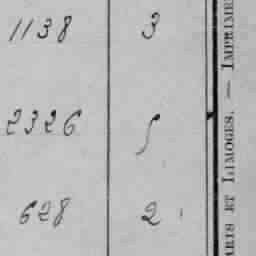 1138 3
2326 5
628 2
ARIS ET LIMOGES. — IMPRIME